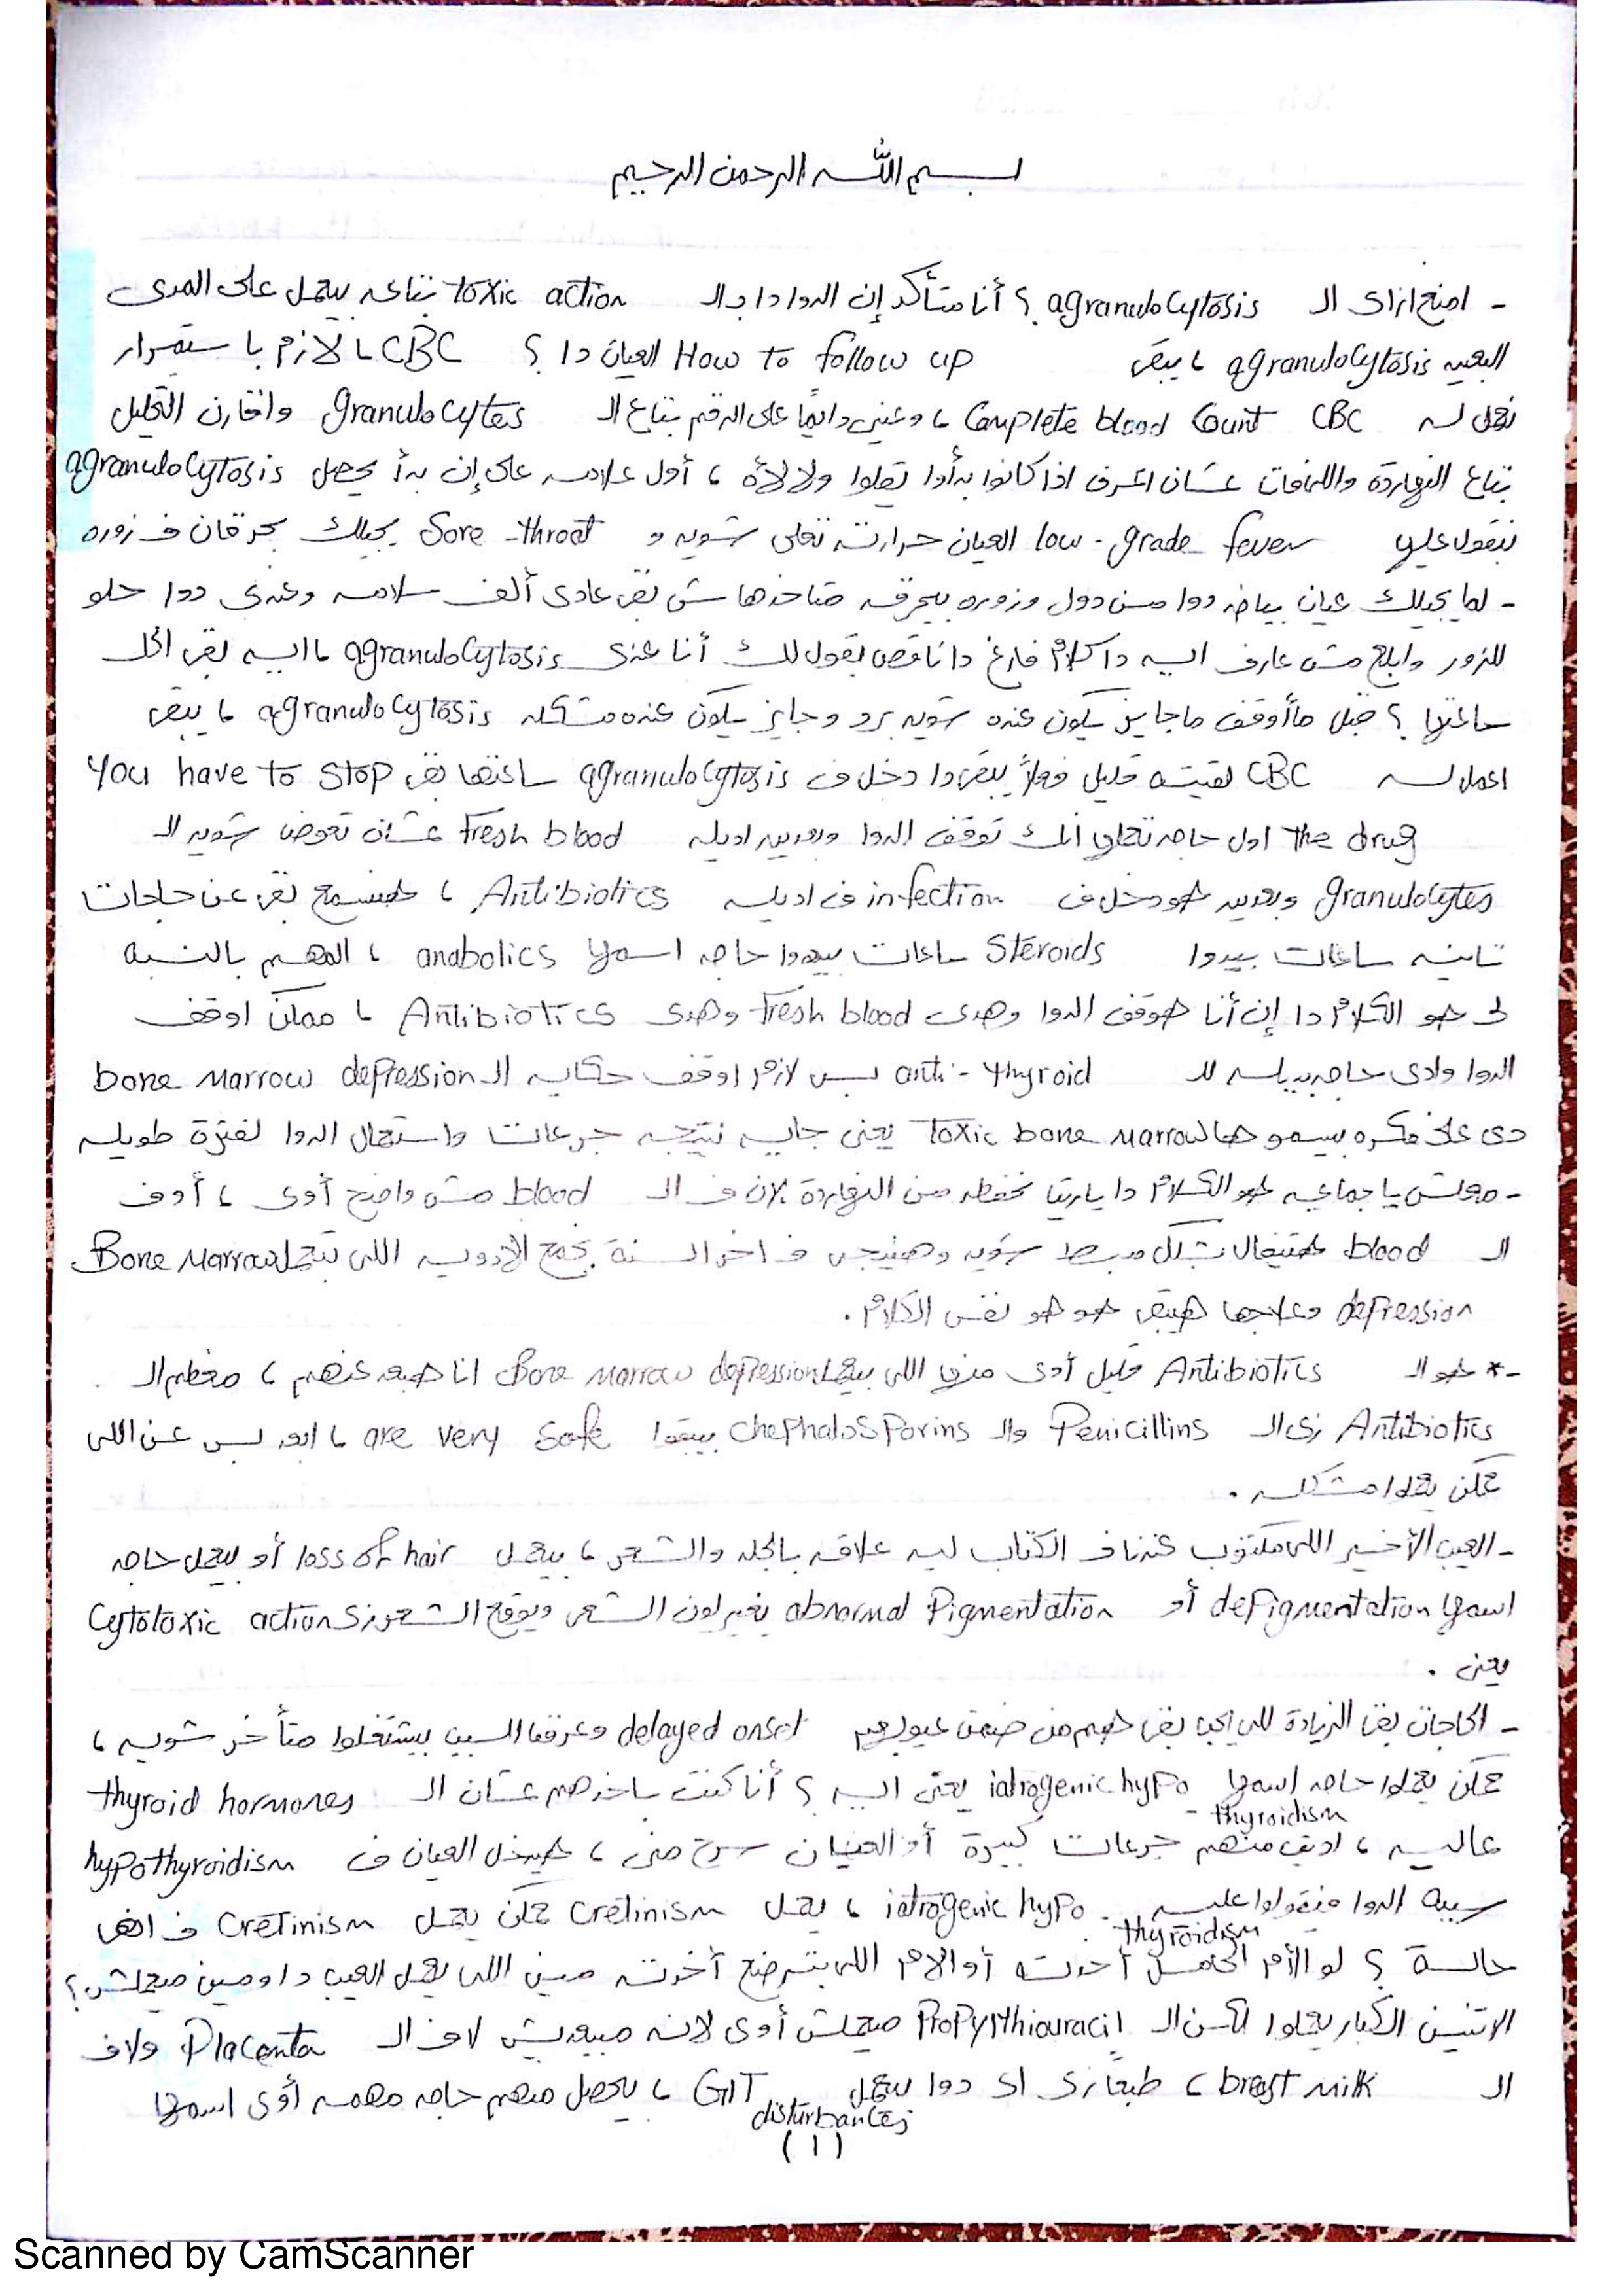 بسم الله الرحمن الرحيم
- امنع ازاى الـ agranulocytosis ؟ أنا متأكد إن الدوا دا بالـ toxic action بتاعه بيعمل على المدى
البعيد agranulocytosis ، يبقى How to follow up العيان دا ؟ CBC ، لازم باستمرار
نعمل له CBC Complete blood count ، وعينى دايمًا على الرقم بتاع الـ granulocytes واقارن التحليل
بتاع النهاردة واللى فات عشان اعرف اذا كانوا بدأوا يقلوا ولا لأه ، أول علامه على إن بدأ يحصل agranulocytosis
نقول عليها low-grade fever العيان حرارته تعلى شويه و Sore-throat يجيلك بحرقان فـ زوره
- لما يجيلك عيان بياخد دوا من دول وزوره بيحرقه متاخدهاش بقى عادى ألف سلامه وعندى دوا حلو
للزور وابلع مش عارف ايه دا كلام فارغ دا ناقص يقول لك أنا عندى agranulocytosis ، ايه بقى الحل
ساعتها ؟ قبل ما أوقف ما جايز يكون عنده شويه برد وجايز يكون عنده مشكله agranulocytosis ، يبقى
اعمل له CBC لقيته قليل فعلاً يبقى دا دخل فـ agranulocytosis ساعتها بقى you have to stop
the drug اول حاجه تعملها انك توقف الدوا وبعدين اديله Fresh blood عشان تعوض شويه الـ
granulocytes وبعدين هو دخل فـ infection فـ اديله Antibiotics ، هنسمع بقى عن حاجات
تانيه ساعات بيدوا Steroids ساعات بيدوا حاجه اسمها anabolics ، المهم بالنسبة
لى هو الكلام دا إن أنا هوقف الدوا وهدى Fresh blood وهدى Antibiotics ، ممكن اوقف
الدوا وادى حاجه بديله للـ anti-thyroid بس لازم اوقف حكايه الـ bone marrow depression
دى على فكره بيسموها toxic bone marrow يعنى جايه نتيجه جرعات واستعمال الدوا لفترة طويله
- معلش يا جماعه هو الكلام دا ياريتنا نحفظه من النهاردة لان فـ الـ blood مش واضح أوى ،
الـ blood هتتقال بشكل مبسط شويه وهنيجى فـ اخر السنة نجمع الأدويه اللى بتعمل Bone Marrow
depression وعلاجها هيبقى هو هو نفس الكلام .
-* هو الـ Antibiotics قليل أوى منها اللى بيعمل Bone Marrow depression انا هبعد عنهم ، معظم الـ
Antibiotics زى الـ Penicillins والـ Chephalosporins بيبقوا are very safe ، ابعد بس عن اللى
ممكن يعملوا مشكله .
- العيب الأخير اللى مكتوب عندنا فـ الكتاب ليه علاقه بالجلد والشعر ، بيعمل loss of hair أو بيعمل حاجه
اسمها depigmentation أو abnormal Pigmentation يغير لون الشعر ويوقع الشعر زى Cytotoxic action
يعنى .
- الحاجات بقى الزيادة اللى ايجا بقى هم من ضمن عيوبهم delayed onset وعرفنا السبب بيشتغلوا متأخر شويه ،
ممكن يعملوا حاجه اسمها iatrogenic hypo-thyroidism يعنى ايه ؟ أنا كنت باخدهم عشان الـ thyroid hormones
عاليه ، اديت منهم جرعات كبيرة أو العيان سرح منى ، هيدخل العيان فـ hypothyroidism
سببه الدوا فيقولوا عليه iatrogenic hypo-thyroidism ، يعمل Cretinism ممكن يعمل Cretinism فـ انهى
حالة ؟ لو الأم الحامل أخدته أو الام اللى بترضع أخدته مين اللى يعمل العيب دا ومين ميعملش ؟
الاتنين الكبار يعملوا لكن الـ Propylthiouracil ميعملش أوى لانه مبيعديش لا فـ الـ Placenta ولا فـ
الـ breast milk ، طبعًا زى اى دوا بيعمل GIT disturbances ، يحصل منهم حاجه مهمه أوى اسمها
(١)
Scanned by CamScanner